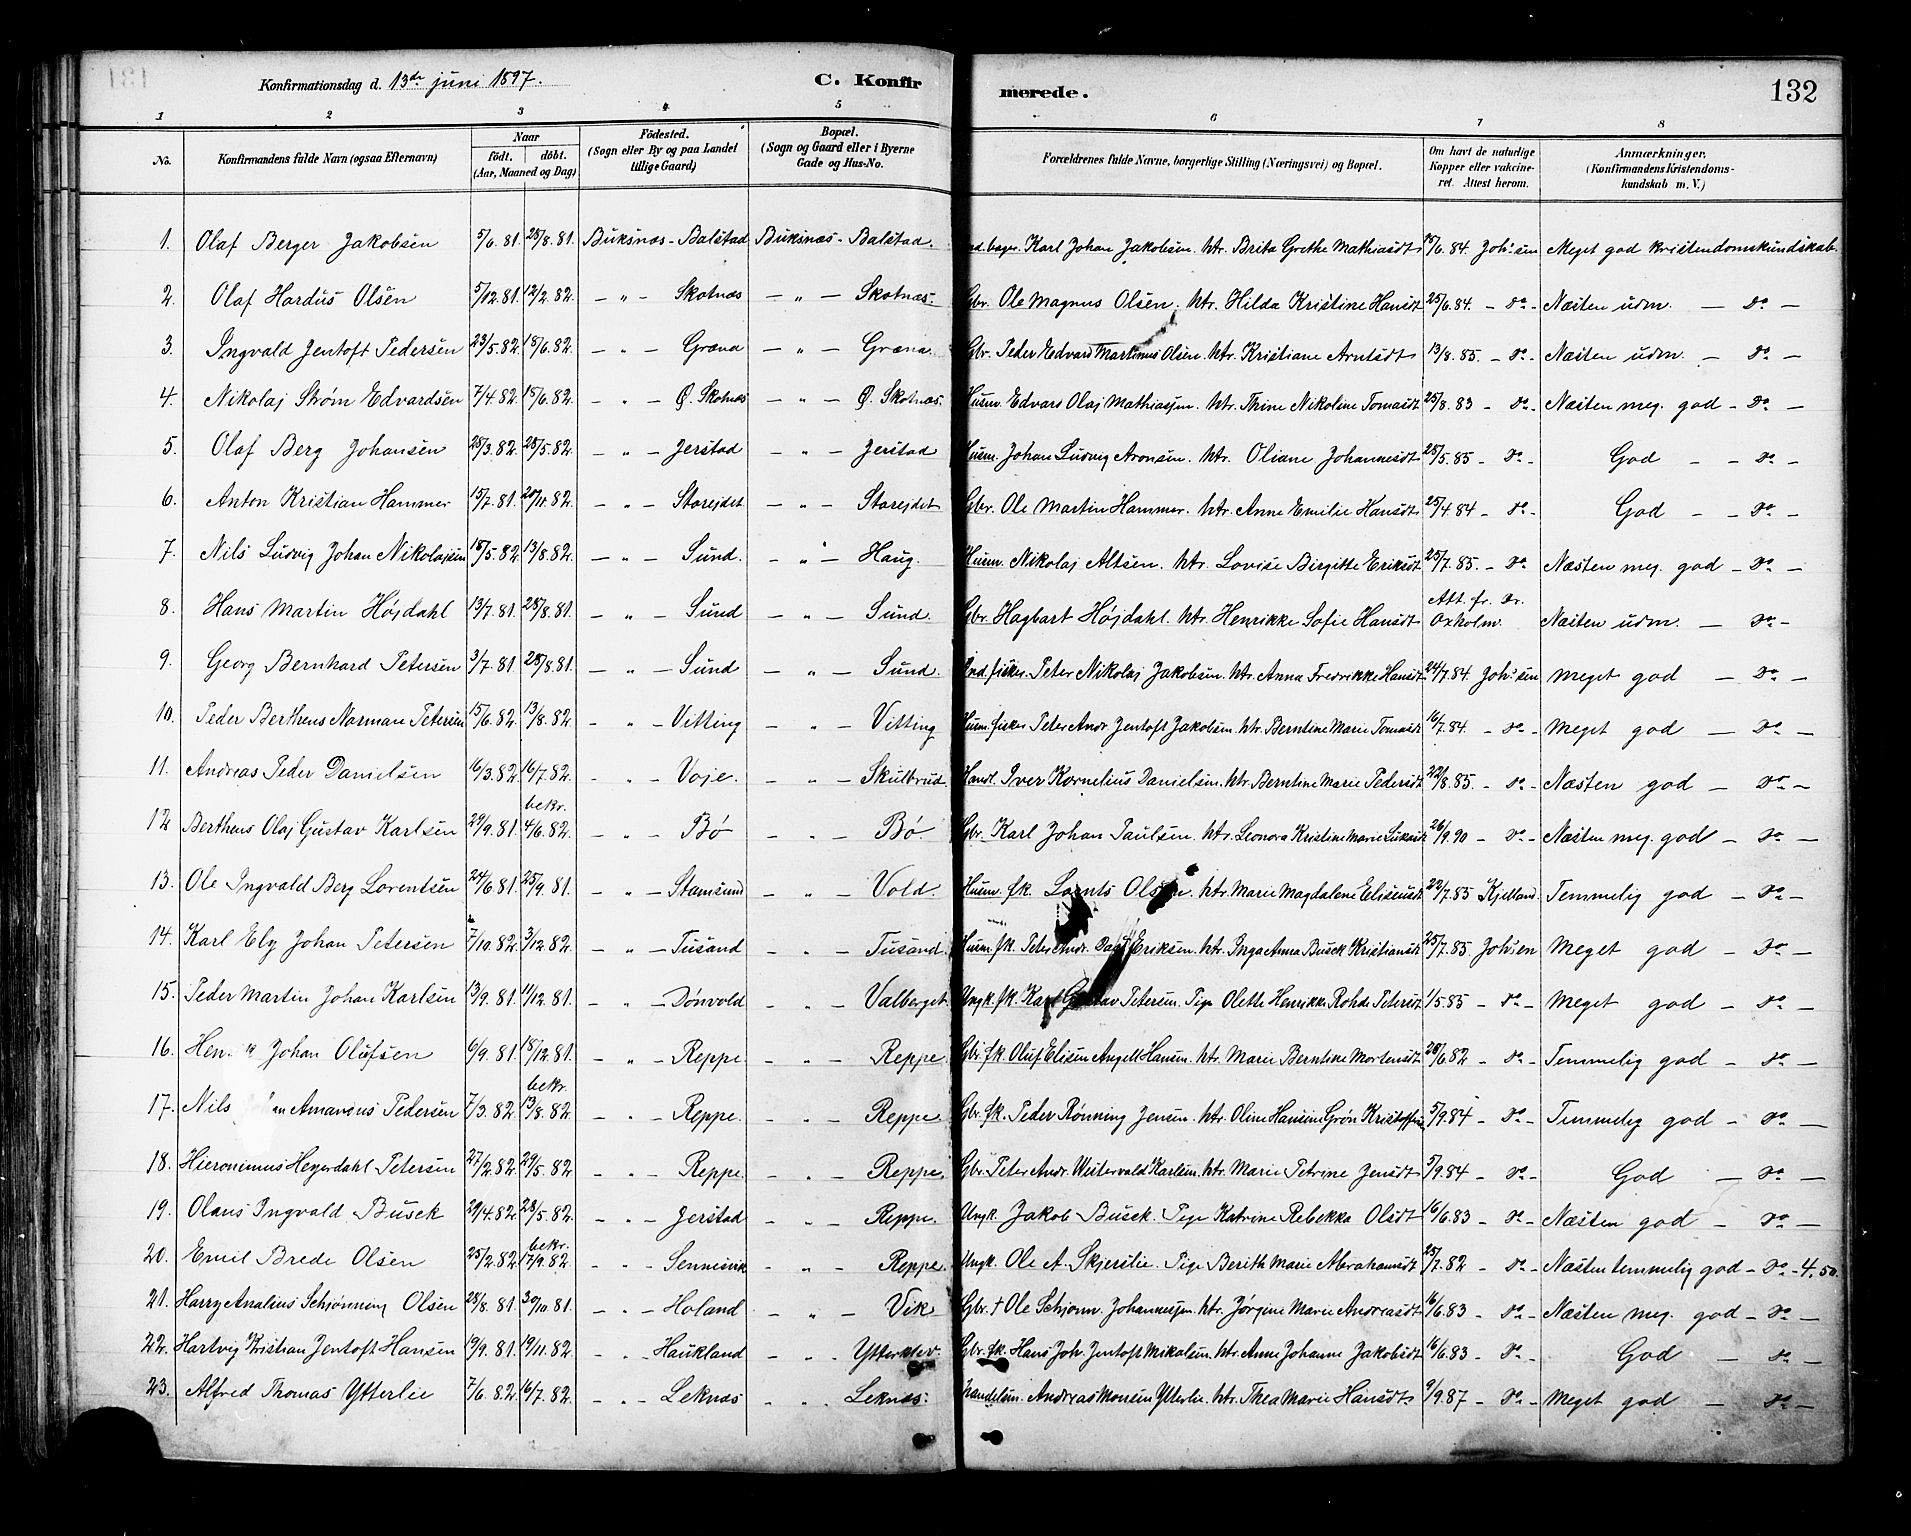 Konfirmationsdag d. 13de juni 1897.
C. Konfirmerede.
132
1 2 3 4 5 6 7 8
No. Konfirmandens fulde Navn (ogsaa Efternavn) Naar födt. döbt. (Aar, Maaned og Dag) Födested. (Sogn eller By og paa Landet tillige Gaard) Bopæl. (Sogn og Gaard eller i Byerne Gade og Hus-No. Forældrenes fulde Navne, borgerlige Stilling (Næringsvei) og Bopæl. Om havt de naturlige Kopper eller vakcineret. Attest herom. Anmærkninger. (Konfirmandens Kristendomskundskab m. V.)
1. Olaf Berger Jakobsen 5/6.81. 28/8.81. Buksnæs - Balstad Buksnæs - Balstad. Karl Johan Jakobsen. htr. Brita Grethe Mathiasdtr /6.84. Joh:sen Meget god kristendomskundskab.
2. Olaf Hardus Olsen 5/12.81. 12/2.82. - " - Skotnæs - " - Skotnæs. Gbr. Ole Magnus Olsen. htr. Hilda Kristine Hansdt 25/6.84 - Do - Næsten udm. - Do -
3. Ingvald Jentoft Pedersen 23/5.82. 18/6.82. - " - Græna - " - Græna. Gbr. Peder Edvard Martinus Olsen. htr. Kristiane Arntsdt 13/8.85 - Do - Næsten udm. - Do -
4. Nikolaj Strøm Edvardsen 7/4.82. 18/6.82. - " - Ø. Skotnæs - " - Ø. Skotnæs. Husm. Edvard Olaj Mathiassen. htr. Thine Nikoline Tomasdt 25/8.83 - Do - Næsten meg. god - Do -
5. Olaf Berg Johansen 25/3.82 28/5.82. - " - Jerstad - " - Jerstad Husm. Johan Ludvig Aronsen. htr. Oliane Johannesdt 25/5.85 - Do - God - Do -
6. Anton Kristian Hammer 15/7.81. 20/11.82. - " - Storejdet - " - Storejdet Gbr. Ole Martin Hammer. htr. Anne Emilie Hansdt 25/4.84 - Do - God - Do -
7. Nils Ludvig Johan Nikolajsen 18/5.82 13/8.82. - " - Sund. - " - Haug. Husm. Nikolaj Altsen. htr. Lovise Birgitte Eriksdt 25/7.85. - Do Næsten meg. god - Do -
8. Hans Martin Højdahl 13/7.81. 28/8.81. - " - Sund - " - Sund. Gbr. Hagbart Højdahl. htr. Henrikke Sofie Hansdt Att. fr. Dr. Oxholm. Næsten udm. - Do -
9. Georg Bernhard Petersen 3/7.81. 28/8.81. - " - Sund - " - Sund. Ind. fisker. Peter Nikolaj Jakobsen. htr. Anna Fredrikke Hansdt 24/7.84. Joh:sen Meget god - Do -
10. Peder Berthens Norman Petersen 15/6.82. 13/8.82. - " - Vitting - " - Vitting Husm. fisker Peter Andr. Jentoft Jakobsen. htr. Berntine Marie Tomasdt 16/7.84. - Do - Meget god - Do -
11. Andreas Peder Danielsen 16/3.82. 16/7.82. - " - Voje. - " - Skulbrud. Handl. Iver Kornelius Danielsen. htr. Berntine Marie Pedersdt 22/8.85. - Do - Næsten god - Do -
12. Berthens Olaj Gustav Karlsen 29/9.81. bekr. 4/6.82. - " - Bø - " - Bø. Gbr. Karl Johan Paulsen. htr. Leonora Kristine Marie Lukasdt 26/9.90 - Do - Næsten meg. god - Do -
13. Ole Ingvald Berg Lorentsen 24/6.81. 25/9.81. - " - Stamsund - " - Vold. Husm. fk. Lornts Olsen. htr. Marie Magdalene Eliseusdt 22/7.85 Kjelland. Temmelig god - Do -
14. Karl Ely Johan Petersen 7/10.82. 3/12.82. - " - Tusand - " - Tusand. Husm. fk. Peter Andr. Eriksen. htr. Inga Anna Busch Kristiansdt 25/7.85 Joh:sen Meget god - Do -
15. Peder Martin Johan Karlsen 13/9.81. 11/12.81. - " - Dönvold - " - Valberget. Ungk. fk. Karl Gustav Petersen. Pige Olette Henrikke Rohde Petersdt 1/5.85 - Do - Meget god - Do -
16. Johan Olufsen 6/9.81. 18/12.81. - " - Reppe. - " - Reppe. Gbr. fk. Oluf Elisen Angell Hansen. htr. Marie Berntine Mortensdt 28/6.82 - Do - Temmelig god - Do -
17. Nils Amandus Pedersen 7/3.82. bekr. 13/8.82. - " - Reppe. - " - Reppe. Gbr. fk. Peder Rønning Jensen. htr. Oline Hansine Grøn 5/9.84 - Do - Temmelig god - Do -
18. Hieronimus Heyerdahl Petersen 27/2.82. 29/5.82. - " - Reppe. - " - Reppe. Gbr. Peter Andr. Westervald Karlsen. htr. Marie Petrine Jensdt 5/9.84 - Do - God - Do -
19. Olaus Ingvald Busch 29/4.82. 28/5.82. - " - Jerstad - " - Reppe. Ungk. Jakob Busch. Pige Katrine Rebekka Olsdt 16/6.83 - Do - Næsten god - Do -
20. Emil Brede Olsen 25/2.82. bekr. 17/9.82. - " - Sennesvik - " - Reppe. Ungk. Ole A. Skjerslie. Pige Berith Marie Abrahamsdt 25/7.82 - Do - Næsten temmelig god - Do - 4.50.
21. Harry Analius Schjønning Olsen 28/8.81. 30/10.81. - " - Holand - " - Vik. Gbr. † Ole Schjønn. Johannesen. htr. Jørgine Marie Andreasdt 16/6.83 - Do - Næsten meg. god - Do -
22. Hartvig Kristian Jentoft Hansen 19/9.81. 19/11.82. - " - Haukland - " - Ytterklev. Gbr. fk. Hans Joh. Jentoft Mikalsen. htr. Anne Johanne Jakobsdt 16/6.83 - Do - God - Do -
23. Alfred Thomas Ytterlie 7/6.82. 16/7.82. - " - Leknæs - " - Leknæs. Handelsm. Andreas Monsen Ytterlie. htr. Thea Marie Hansdt. 9/9.87 - Do - Meget god - Do -